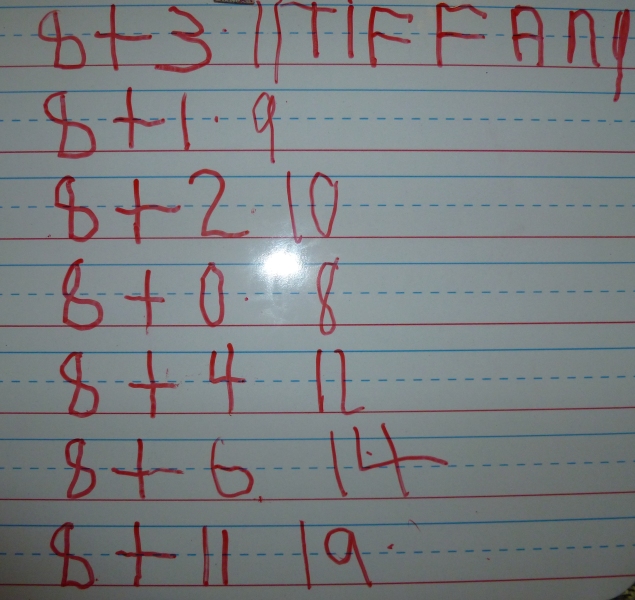 8+3 11 TIFFANY
8+1 9
8+2 10
8+0 8
8+4 12
8+6 14
8+11 19